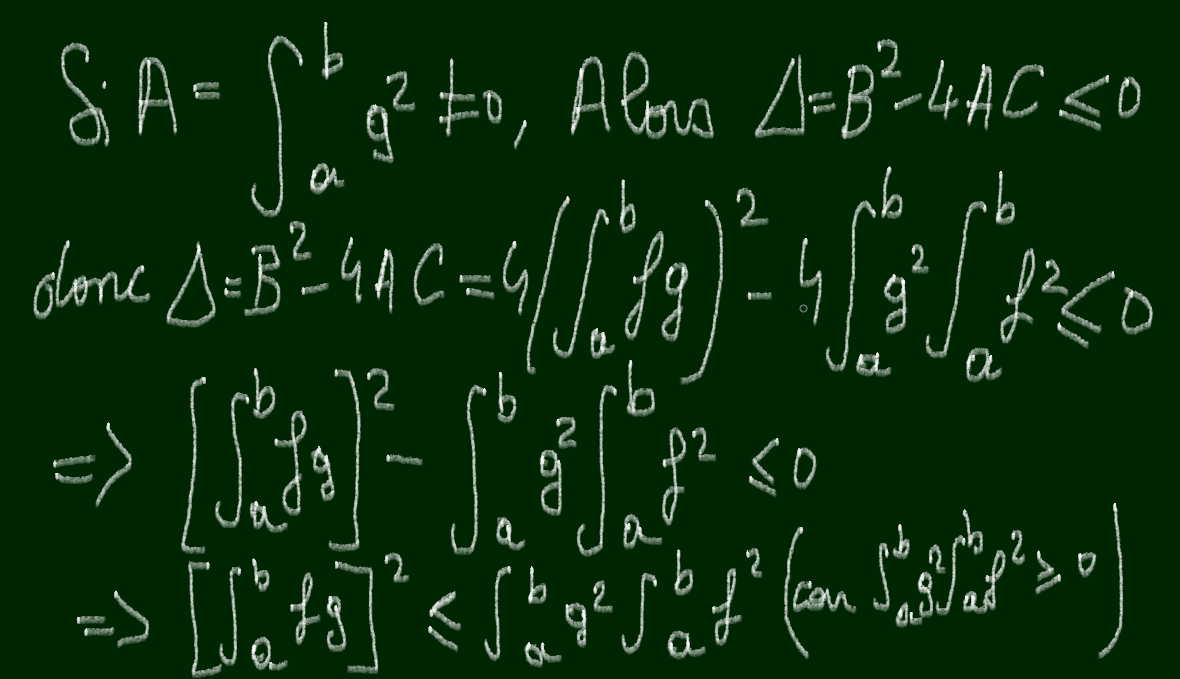 Si A = ∫_a^b g² ≠ 0, Alors Δ = B² - 4AC ≤ 0
donc Δ = B² - 4AC = 4(∫_a^b fg)² - 4∫_a^b g² ∫_a^b f² ≤ 0
=> [∫_a^b fg]² - ∫_a^b g² ∫_a^b f² ≤ 0
=> [∫_a^b fg]² ≤ ∫_a^b g² ∫_a^b f² (car ∫_a^b g² ∫_a^b f² ≥ 0)